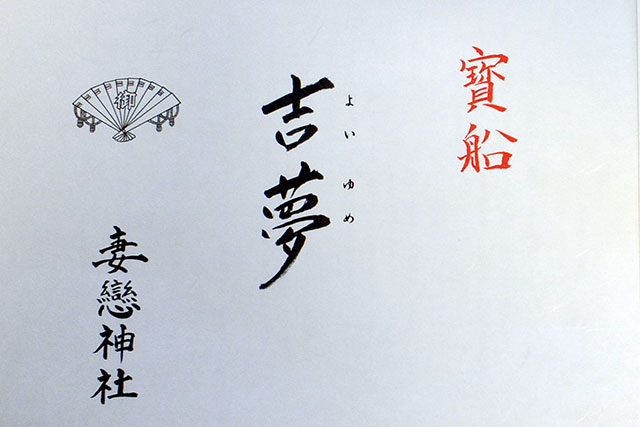 寶船
よいゆめ
吉夢
妻戀神社